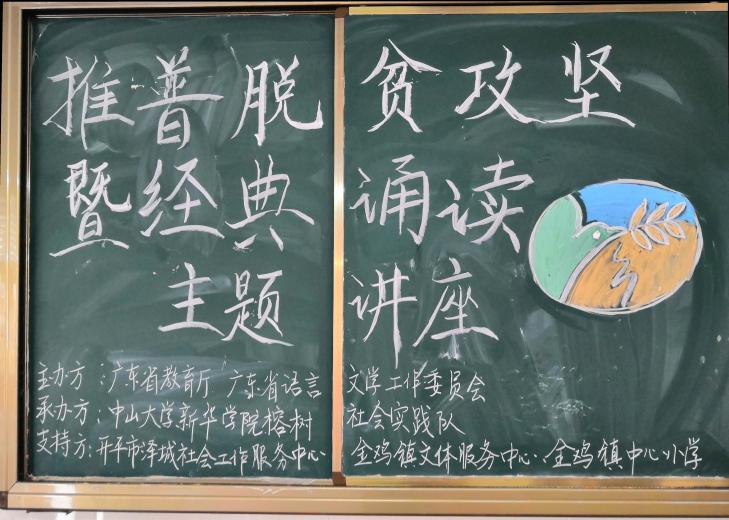 推普脱贫攻坚
暨经典诵读
主题讲座
主办方：广东省教育厅 广东省语言文学工作委员会
承办方：中山大学新华学院榕树社会实践队
支持方：开平市泽城社会工作服务中心 金鸡镇文体服务中心、金鸡镇中心小学